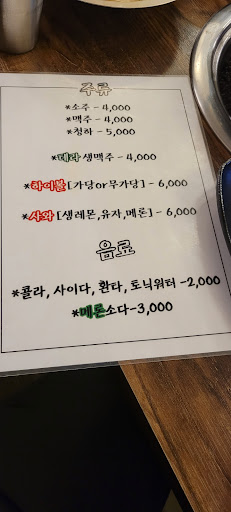 주류
*소주 - 4,000
*맥주 - 4,000
*청하 - 5,000
*테라 생맥주 - 4,000
*하이볼 [가당or무가당] - 6,000
*사와 [생레몬,유자,메론] - 6,000
음료
*콜라, 사이다, 환타, 토닉워터 -2,000
*메론소다-3,000